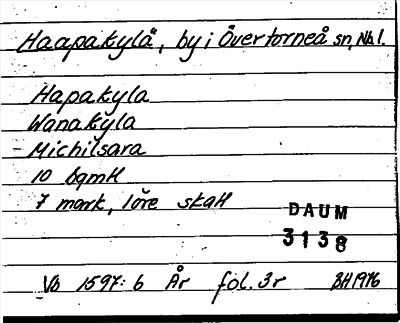 Haapakylä, by i Övertorneå sn, Nbl.
Hapakyla
Wanakÿla
Michilsara
10 bgmH
7 mark, 1 öre skaH
DAUM
3138
Vb 1597:6 År fol. 3r BH 1976